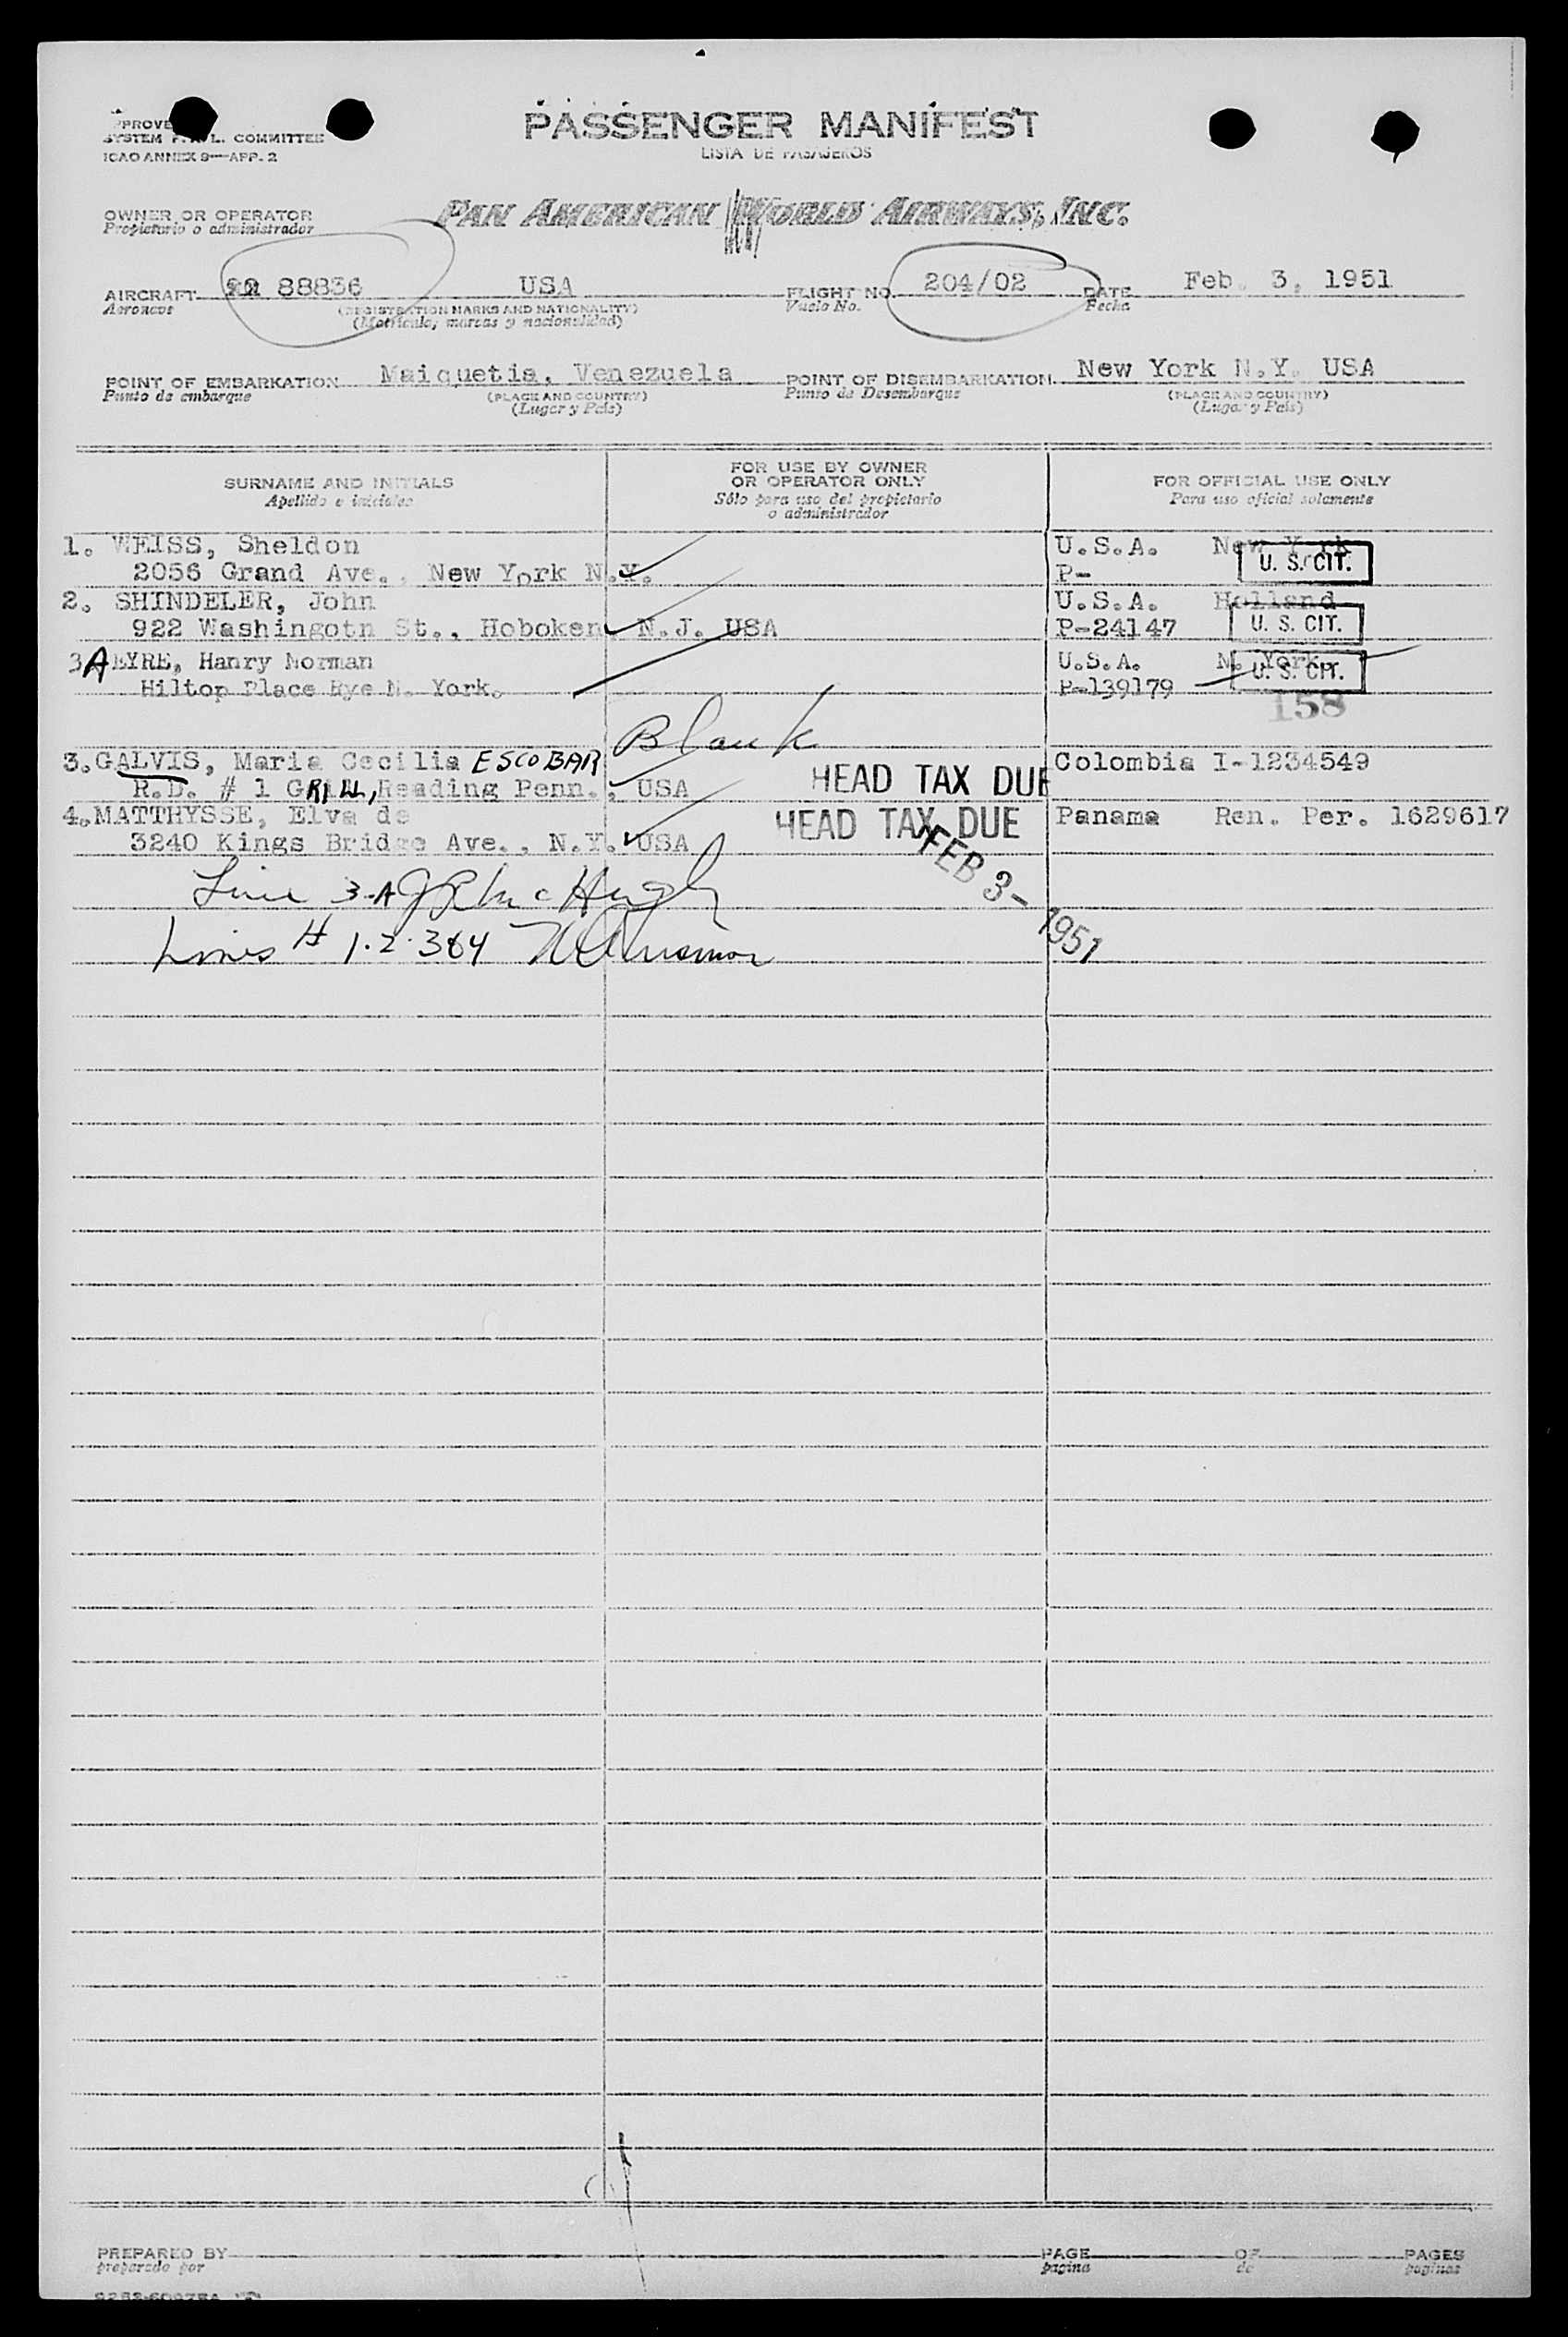 PASSENGER MANIFEST
LISTA DE PASAJEROS
SYSTEM COMMITTEE
ICAO ANNEX 9—APP. 2
OWNER OR OPERATOR PAN AMERICAN WORLD AIRWAYS, INC.
Propietario o administrador
AIRCRAFT 88836 USA FLIGHT NO. 204/02 DATE Feb. 3, 1951
Aeronave (REGISTRATION MARKS AND NATIONALITY) Vuelo No. Fecha
(Matricula, marcas y nacionalidad)
POINT OF EMBARKATION Maiquetia, Venezuela POINT OF DISEMBARKATION New York N.Y. USA
Punto de embarque (PLACE AND COUNTRY) Punto de Desembarque (PLACE AND COUNTRY)
(Lugar y País) (Lugar y País)
SURNAME AND INITIALS FOR USE BY OWNER OR OPERATOR ONLY FOR OFFICIAL USE ONLY
Apellido e iniciales Sólo para uso del propietario o administrador Para uso oficial solamente
1. WEISS, Sheldon U.S.A. New York
2056 Grand Ave., New York N.Y. P- U. S. CIT.
2. SHINDELER, John U.S.A. Holland
922 Washingotn St., Hoboken N.J. USA P-24147 U. S. CIT.
3A EYRE, Hanry Norman U.S.A. N. York
Hiltop Place Rye N. York. P-139179 U. S. CIT.
158
Blank
3. GALVIS, Maria Cecilia ESCOBAR Colombia I-1234549
R.D. # 1 GRILL, Reading Penn., USA HEAD TAX DUE
4. MATTHYSSE, Elva de HEAD TAX DUE Panama Ren. Per. 1629617
3240 Kings Bridge Ave., N.Y. USA
FEB 3- 1951
Line 3-A McHugh
Lines # 1.2.3&4
PREPARED BY PAGE OF PAGES
preparado por pagina de paginas